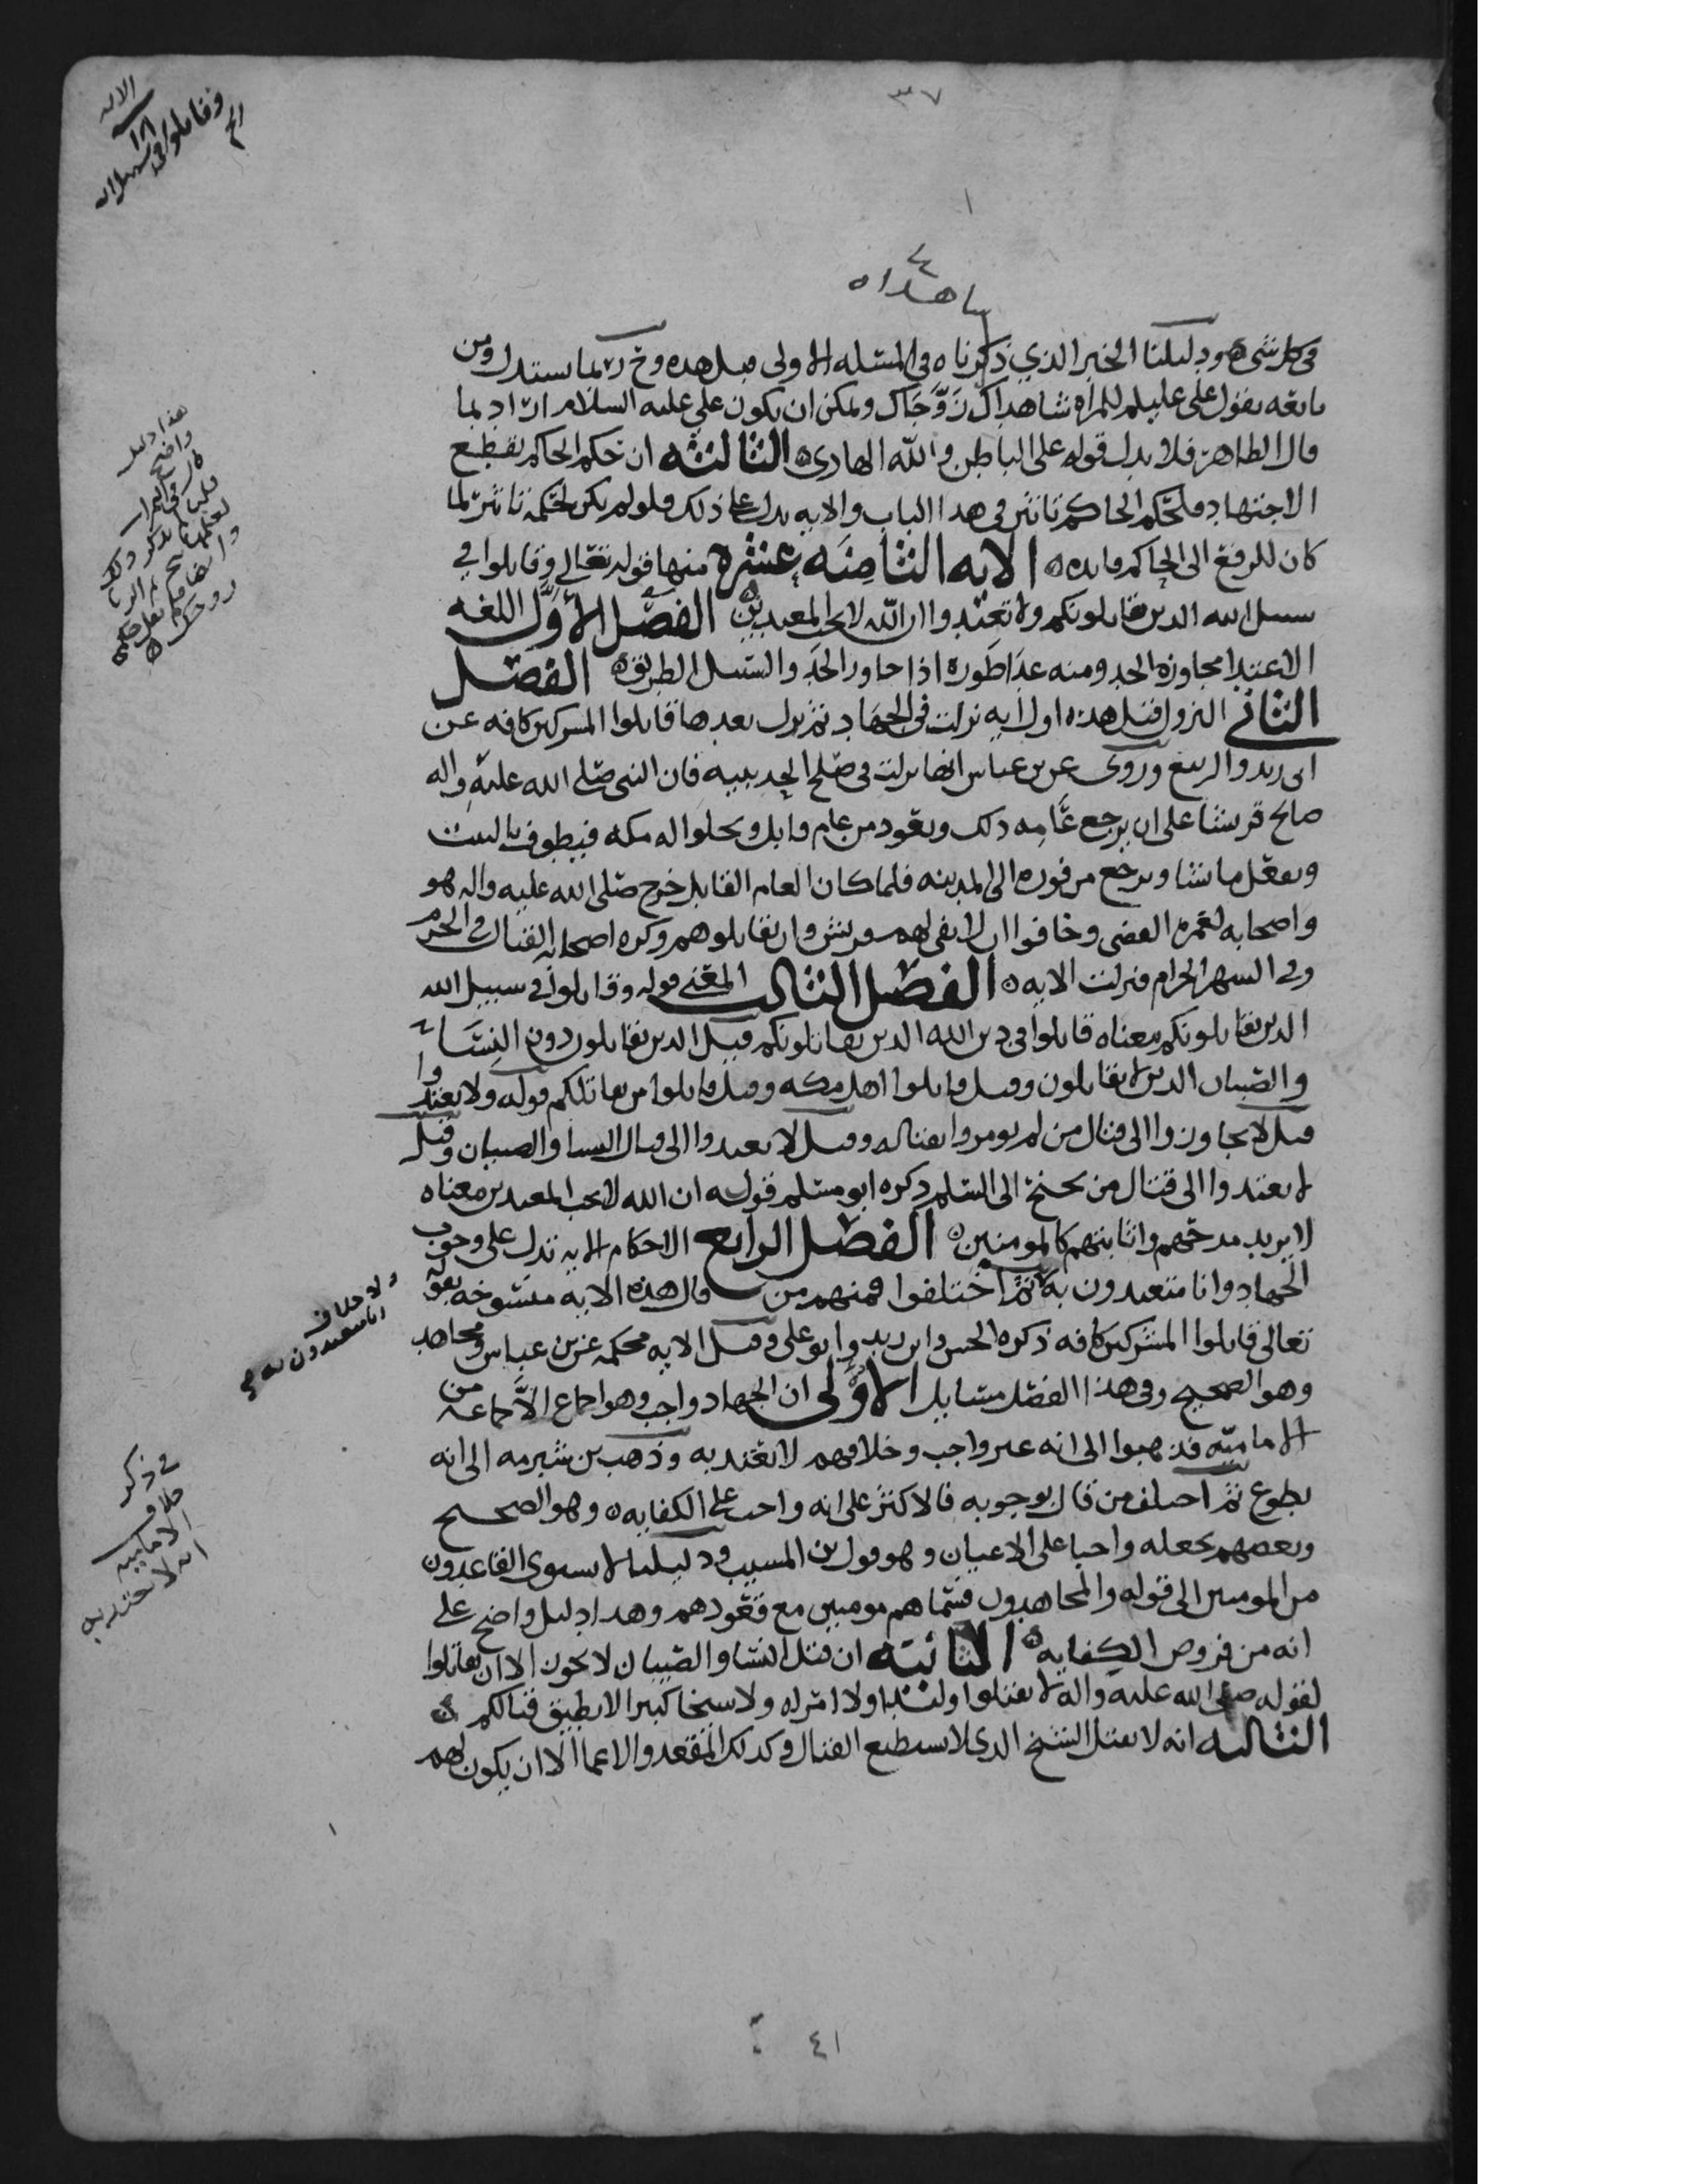 ٣٧
الايه
١٨
وقاتلوا في سبيل الله
شاهداه
في كل شي ودليلنا الخبر الذي ذكرناه في المسئله الاولى قبل هذه وح ربما يستدل ومن
تابعه بقول علي عليلم للمراه شاهداك زوجاك ويمكن ان يكون علي عليه السلام اراد بما
قال الظاهر فلا يدل قوله على الباطن والله الهادي الثالثه ان حكم الحاكم يقطع
الاجتهاد فلحكم الحاكم تاثير في هذا الباب والايه تدل على ذلك فلو لم يكن لحكمه تاثير لما
كان للرفع الى الحاكم فايده الايه الثامنه عشره منها قوله تعالى وقاتلوا في
سبيل الله الذين يقاتلونكم ولا تعتدوا ان الله لا يحب المعتدين الفصل الاول اللغه
الاعتدا مجاوزه الحد ومنه عدا طوره اذا جاوز الحد والسبيل الطريق الفصل
الثاني النزول قيل هذه اول ايه نزلت في الجهاد ثم نزل بعدها قاتلوا المشركين كافه عن
ابن زيد والربيع وروي عن بن عباس انها نزلت في صلح الحديبيه فان النبي صلى الله عليه واله
صالح قريشا على ان يرجع عامه ذلك ويعود من عام قابل ويخلوا له مكه فيطوف بالبيت
ويفعل ما شا ويرجع من فوره الى المدينه فلما كان العام القابل خرج صلى الله عليه واله هو
واصحابه لعمره القضى وخافوا ان لا يفي لهم قريش وان يقاتلوهم وكره اصحابه القتال في الحرم
وفي الشهر الحرام فنزلت الايه الفصل الثالث المعنى قوله وقاتلوا في سبيل الله
الذين يقاتلونكم معناه قاتلوا في دين الله الذين يقاتلونكم قيل الذين يقاتلون دون النسا
والصبيان الذين لا يقاتلون وقيل قاتلوا اهل مكه وقيل قاتلوا من يقاتلكم قوله ولا تعتدوا
قيل لا تجاوزوا الى قتال من لم تومروا بقتاله وقيل لا تعتدوا الى قتال النسا والصبيان وقيل
لا تعتدوا الى قتال من يجنح الى السلم ذكره ابو مسلم قوله ان الله لا يحب المعتدين معناه
لا يريد مدحهم واثابتهم كالمومنين الفصل الرابع الاحكام الايه تدل على وجوب
الجهاد وانا متعبدون به ثم اختلفوا فمنهم من قال هذه الايه منسوخه بقوله
تعالى قاتلوا المشركين كافه ذكره الحسن وابن زيد وابو علي وقيل الايه محكمه عن بن عباس ومجاهد
وهو الصحيح وفي هذا الفصل مسايل الاولى ان الجهاد واجب وهو اجماع الا جماعه من
الاماميه فذهبوا الى انه غير واجب وخلافهم لا يعتد به وذهب بن شبرمه الى انه
تطوع ثم اختلف من قال بوجوبه فالاكثر على انه واجب على الكفايه وهو الصحيح
وبعضهم يجعله واجبا على الاعيان وهو قول بن المسيب ودليلنا لا يستوي القاعدون
من المومنين الى قوله والمجاهدون فسماهم مومنين مع قعودهم وهذا دليل واضح على
انه من فروض الكفايه الثانيه ان قتل النسا والصبيان لا يجوز الا ان يقاتلوا
لقوله صلى الله عليه واله لا تقتلوا وليدا ولا امراه ولا شيخا كبيرا لا يطيق قتالكم
الثالثه انه لا يقتل الشيخ الذي لا يستطيع القتال وكذلك المقعد والاعما الا ان يكون لهم
هذا دليل
واضح
ولا خلاف
انا متعبدون به
في ذكر
خلاف
الاماميه
انه لا يعتد به
٤١